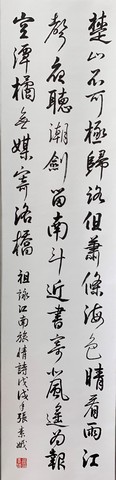 楚山不可極歸路但蕭條海色晴看雨江
聲夜聽潮劍留南斗近書寄北風遙為報
空潭橘無媒寄洛橋
祖詠江南旅情詩戊戌手張素娥